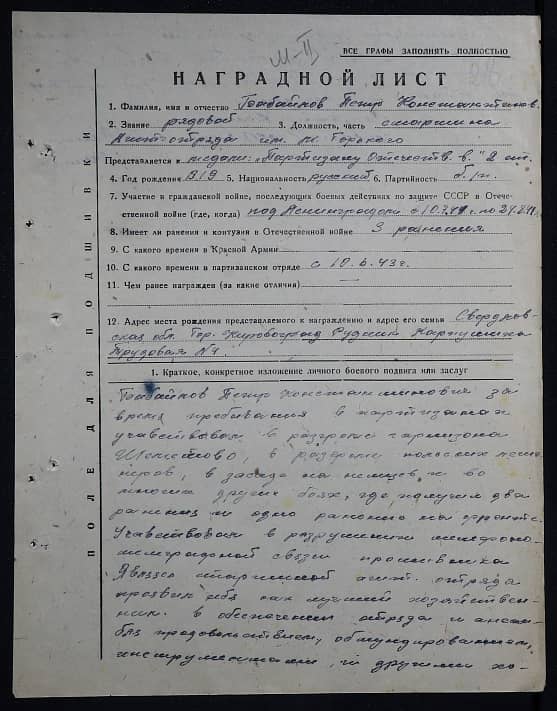 М-II
ВСЕ ГРАФЫ ЗАПОЛНЯТЬ ПОЛНОСТЬЮ
НАГРАДНОЙ ЛИСТ
1. Фамилия, имя и отчество Петр Константинов.
2. Звание рядовой 3. Должность, часть старшина
Агитотряда им. М. Горького
Представляется к медали: „Партизану Отечеств. в." 2 ст.
4. Год рождения 1919 5. Национальность русский 6. Партийность б/п.
7. Участие в гражданской войне, последующих боевых действиях по защите СССР в Отече-
ственной войне (где, когда) под Ленинградом с по
8. Имеет ли ранения и контузии в Отечественной войне 3 ранения
9. С какого времени в Красной Армии
10. С какого времени в партизанском отряде с 10.6.43г.
11. Чем ранее награжден (за какие отличия)
12. Адрес места рождения представляемого к награждению и адрес его семьи Свердлов-
ская обл. Гор. Кировоград Рудник Карпушиха
Трудовая №
1. Краткое, конкретное изложение личного боевого подвига или заслуг
Петр Константинович за
время пребывания в партизанах
участвовал в разгроме гарнизона
в разгроме польских
в засаде на немцев, и во
многих других боях, где получил два
ранения и одно ранение на фронте.
Участвовал в разрушении телефоно-
телеграфной связи противника
Являясь старшиной агит. отряда
проявил себя как лучший хозяйствен-
ник в обеспечении отряда и ансам-
бля продовольствием, обмундированием,
инструментами, и другими хо-
ПОЛЕ ДЛЯ ПОДШИВКИ